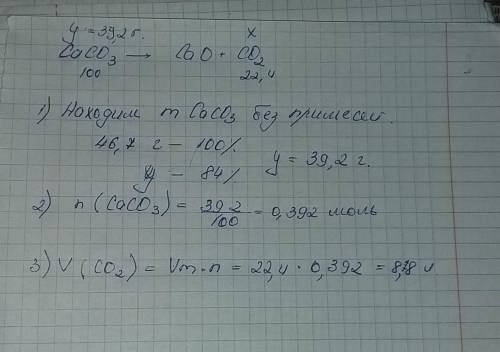 y = 39,2 г. x
CaCO3 → CaO + CO2
100 22,4
1) Находим m CaCO3 без примесей.
46,7 г — 100%
y — 84% y = 39,2 г.
2) n (CaCO3) = 39,2 / 100 = 0,392 моль
3) V (CO2) = Vm·n = 22,4 · 0,392 = 8,78 л